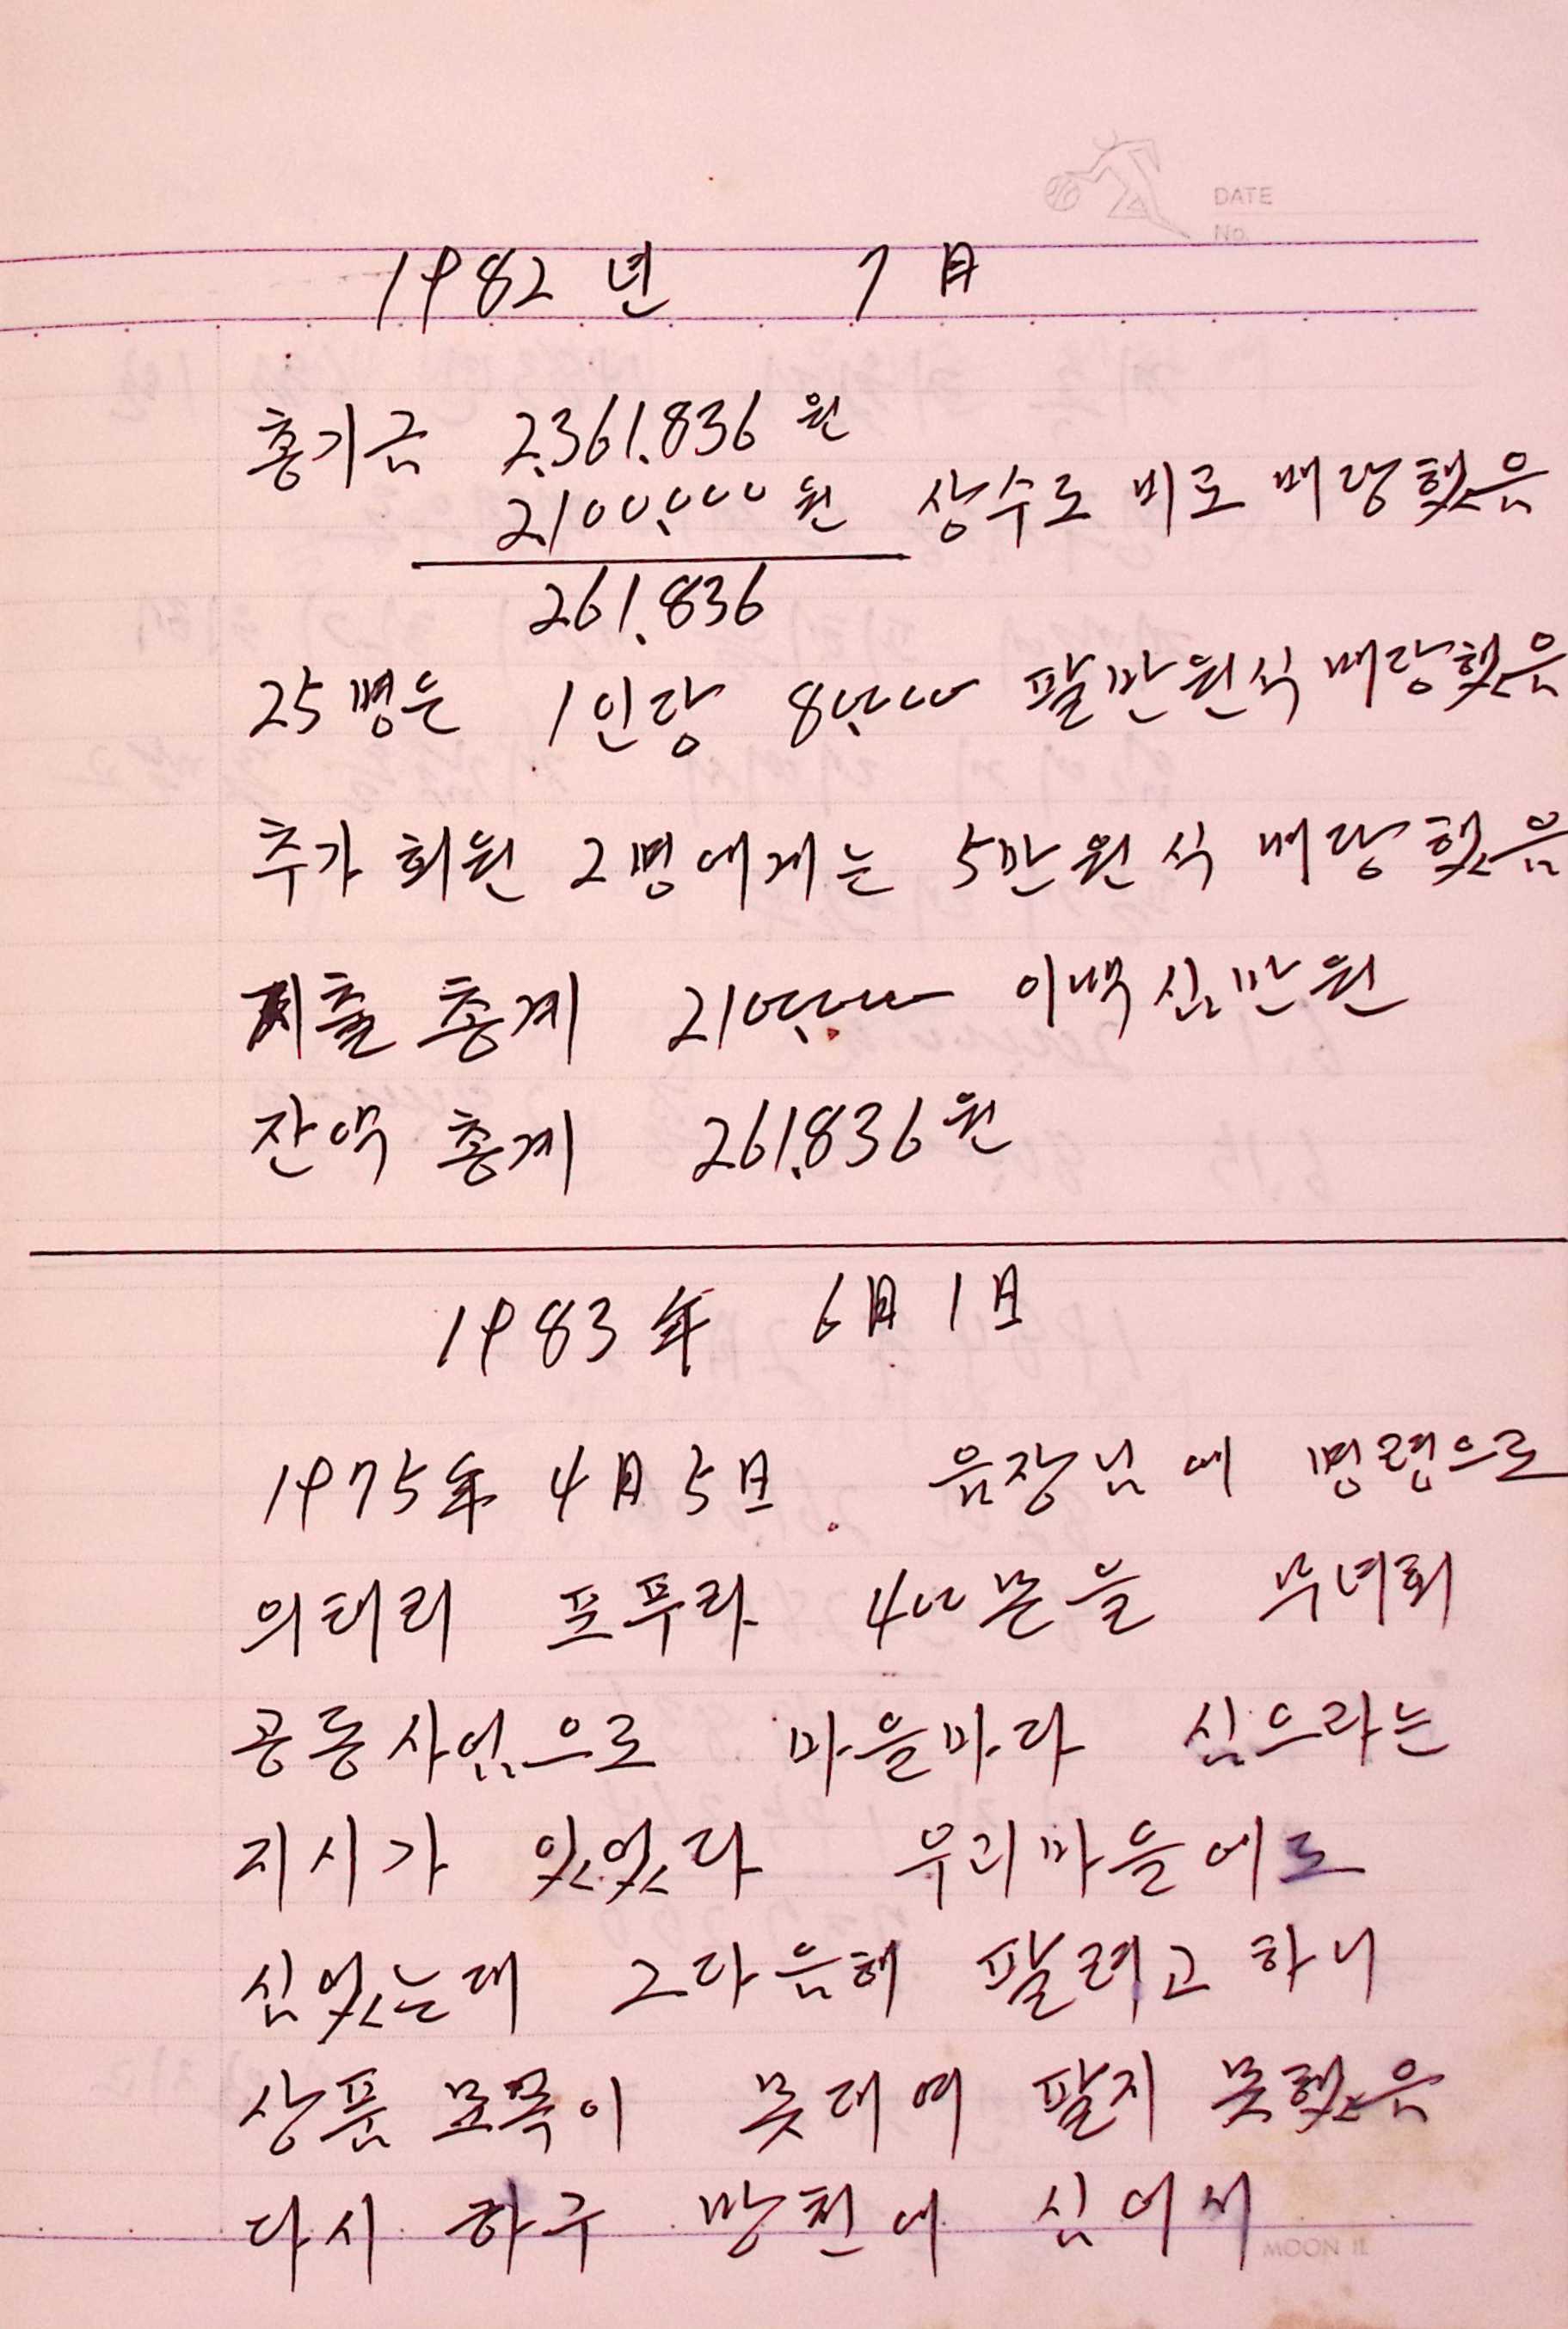 DATE
No.
1982년 7月
총기금 2.361.836원
2.100.000원 상수도 비로 배당했음
261.836
25명은 1인당 80.000 팔만원식 배당했음
추가 회원 2명에게는 5만원식 배당했음
지출 총계 2100.000 이백십만원
잔액 총계 261.836원
1983年 6月 1日
1975年 4月 5日 읍장님에 명령으로
의태리 포푸라 400본을 부녀회
공동사업으로 마을마다 심으라는
지시가 있었다 우리마을에도
심었는데 그다음해 팔려고 하니
상품 묘목이 못대여 팔지 못했음
다시 하구 방천에 심어서
MOON IL